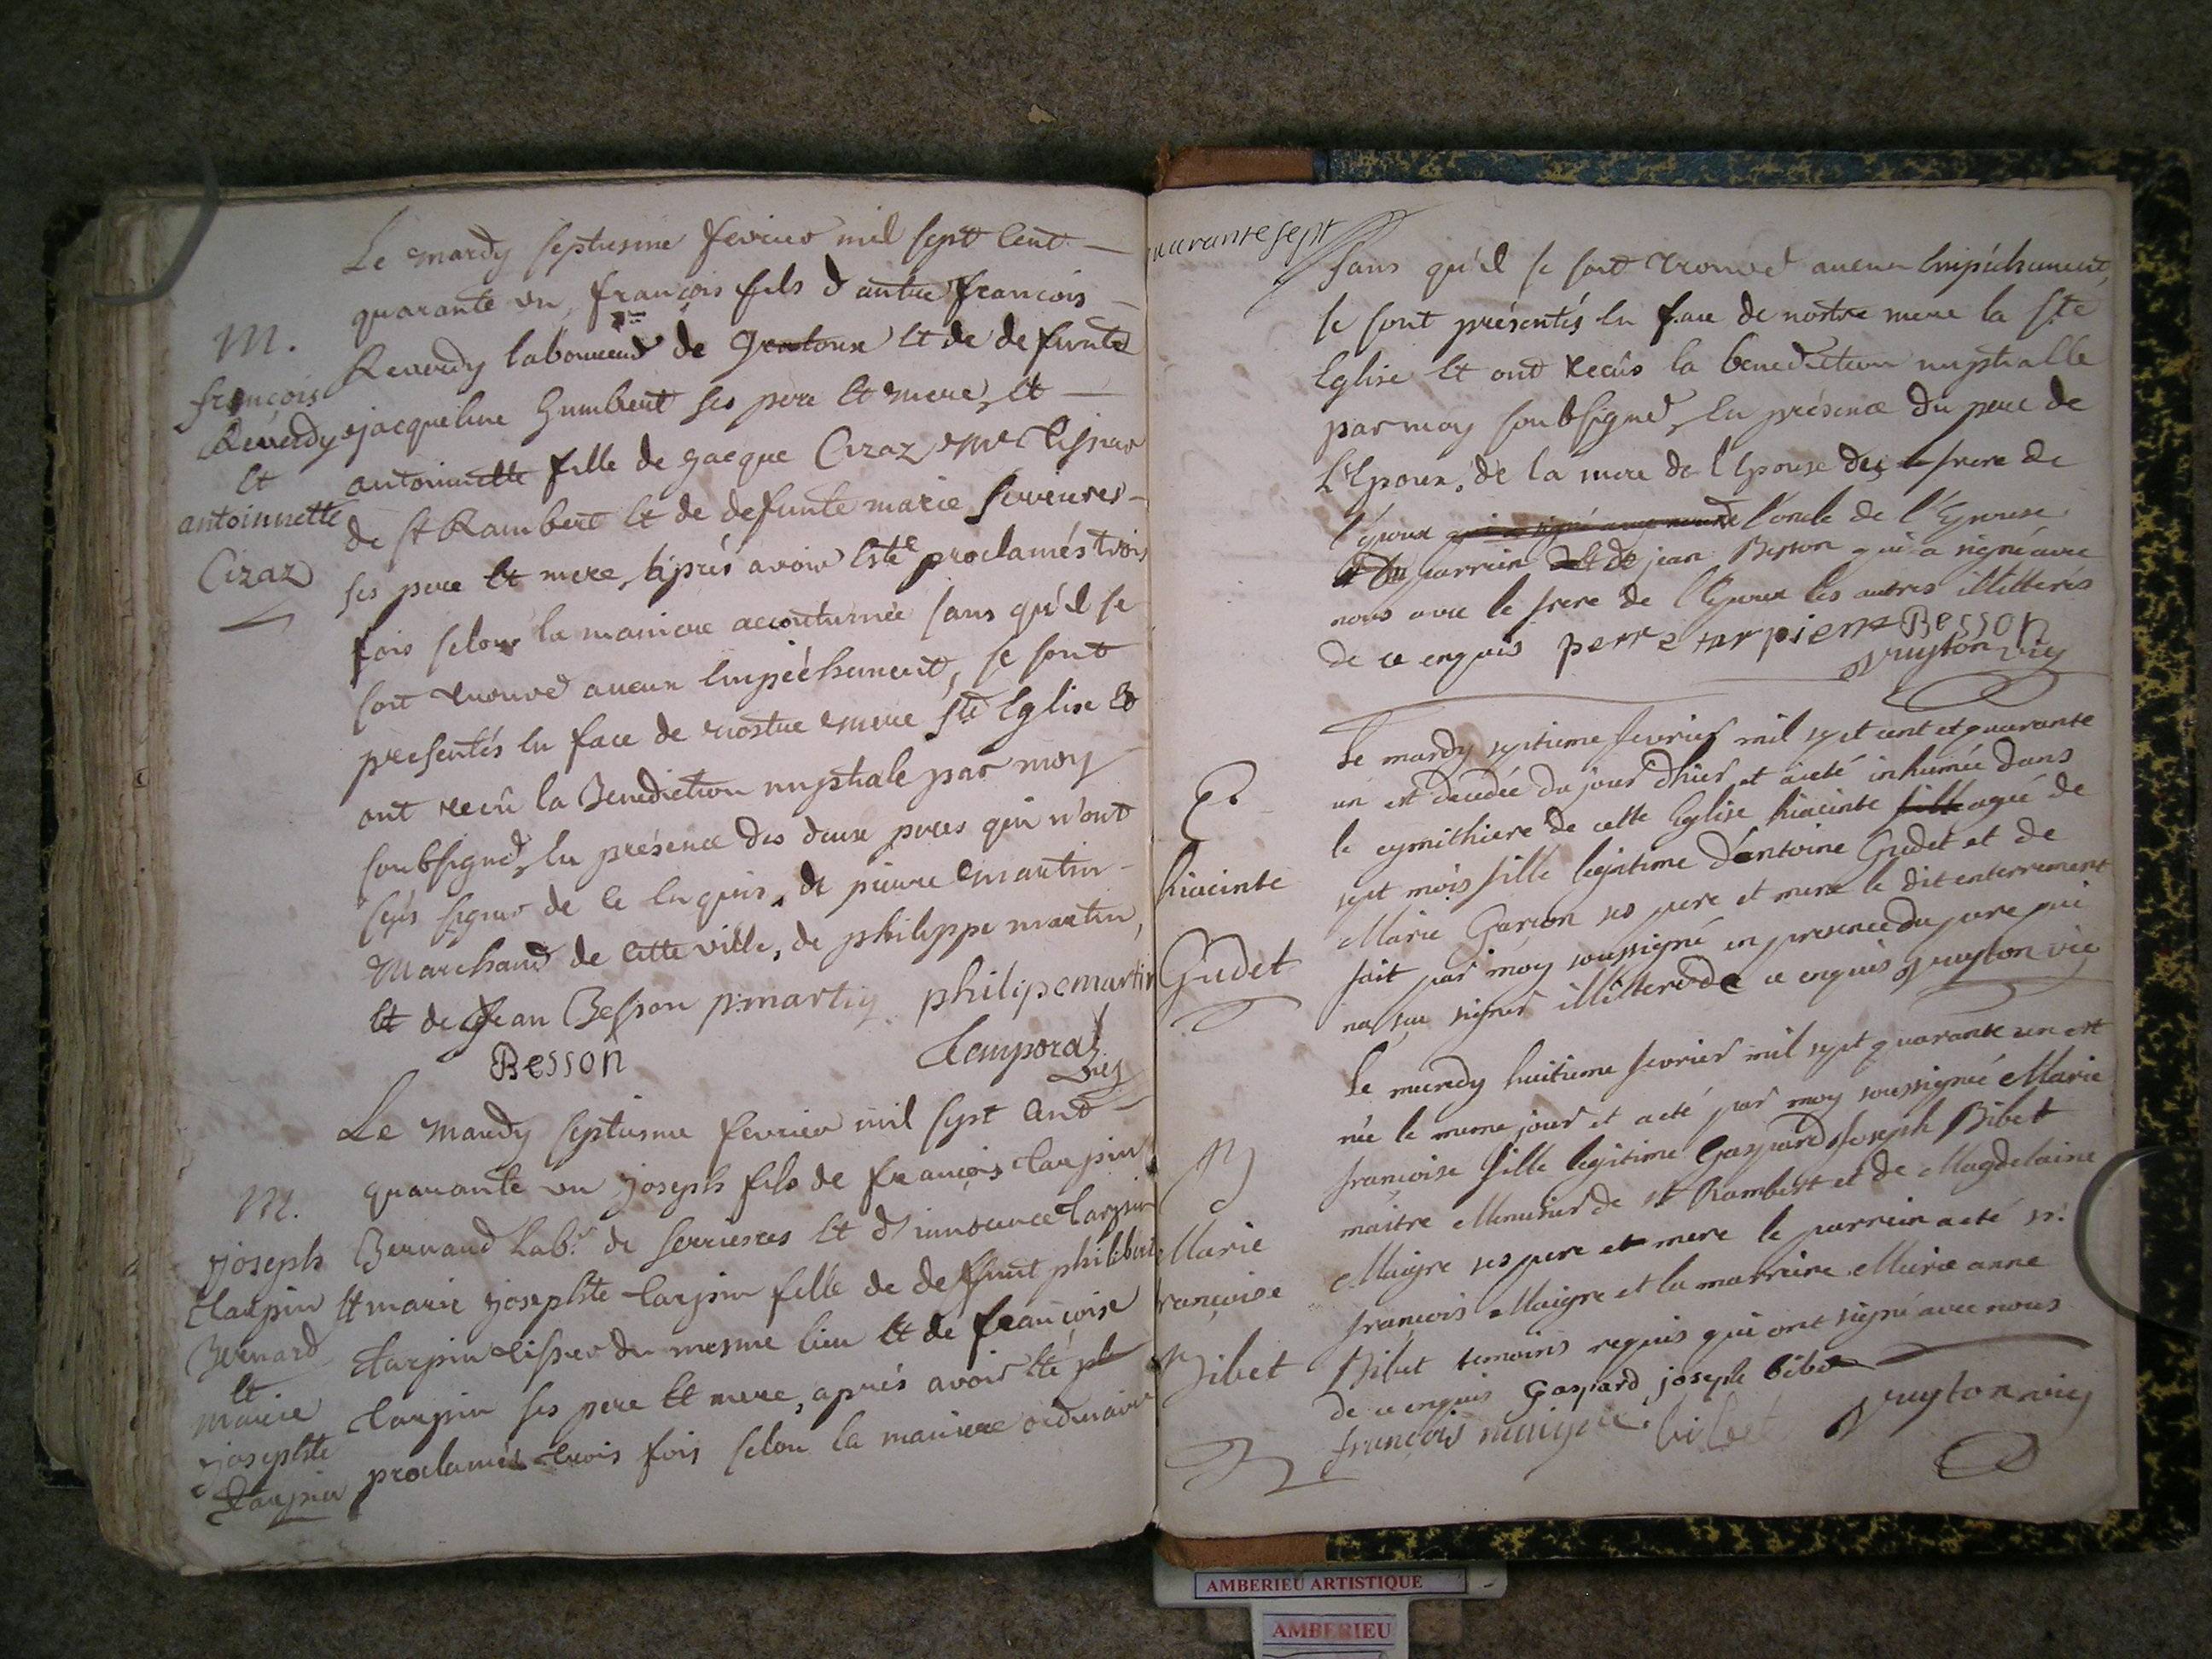 M.
françois
Reverdy
et
antoinnette
Cizaz
Le mardy septiesme fevrier mil sept cent
quarante un, françois fils d'autre françois
Reverdy laboureur de et de defunte
jacqueline humbert ses pere et mere, et
antoinnette fille de jacque Cizaz me tissier
de st Rambert et de defunte marie serrieres
ses pere et mere, après avoir esté proclamés trois
fois selon la maniere accoutumée sans qu'il se
soit trouvé aucun empêchement, se sont
presentés en face de nostre mere ste Eglise et
ont reçû la Benediction nuptiale par moy
soubsigné, en présence des deux peres qui n'ont
sçus signer de ce enquis, de pierre martin
Marchand de cette ville, de philippe martin,
et de jean Besson p:martin philipe martin
Besson Temporal
vic
M.
joseph
tarpin
Bernard
et
marie
josephte
tarpin
Le mardy septiesme fevrier mil sept cent
quarante un joseph fils de françois tarpin
Bernard lab.r de serrieres et d'innocence tarpin
et marie josephte tarpin fille de deffunt philibert
tarpin tissier du mesme lieu et de françoise
tarpin ses pere et mere, après avoir été
proclamés trois fois selon la maniere ordinaire
quarante sept
sans qu'il se soit trouvé aucun empêchement,
se sont présentés en face de nostre mere la ste
Eglise et ont recûs la benediction nuptialle
par moy soubsigné, en présence du pere de
l'Epoux, de la mere de l'Epouse du frere de
l'époux l'oncle de l'Epouse
parrein et de jean Besson qui a signé avec
nous avec le frere de l'Epoux les autres illitterés
de ce enquis perre tarpien Besson
vic
E.
hiacinte
Gudet
Le mardy septieme fevrier mil sept cent et quarante
un est decedée du jour d'hier et a eté inhumée dans
le cymithiere de cette Eglise hiacinte fille agée de
sept mois fille legitime d'antoine Gudet et de
Marie Garcon ses pere et mere le dit enterrement
fait par moy soussigné en presence du pere qui
na sçu signer illitteré de ce enquis vic
Marie
françoise
Bibet
Le mecredy huitieme fevrier mil sept quarante un est
née le meme jour et a eté par moy soussigné Marie
françoise fille legitime Gaspard Joseph Bibet
maitre Menusier de st Rambert et de Magdelaine
Maigre ses pere et mere le parrein a eté sr.
françois Maigre et la marreine Marie anne
Bibet temoins requis qui ont signé avec nous
de ce enquis Gaspard joseph bibet
françois maigre. bibet vic
AMBERIEU ARTISTIQUE
AMBERIEU